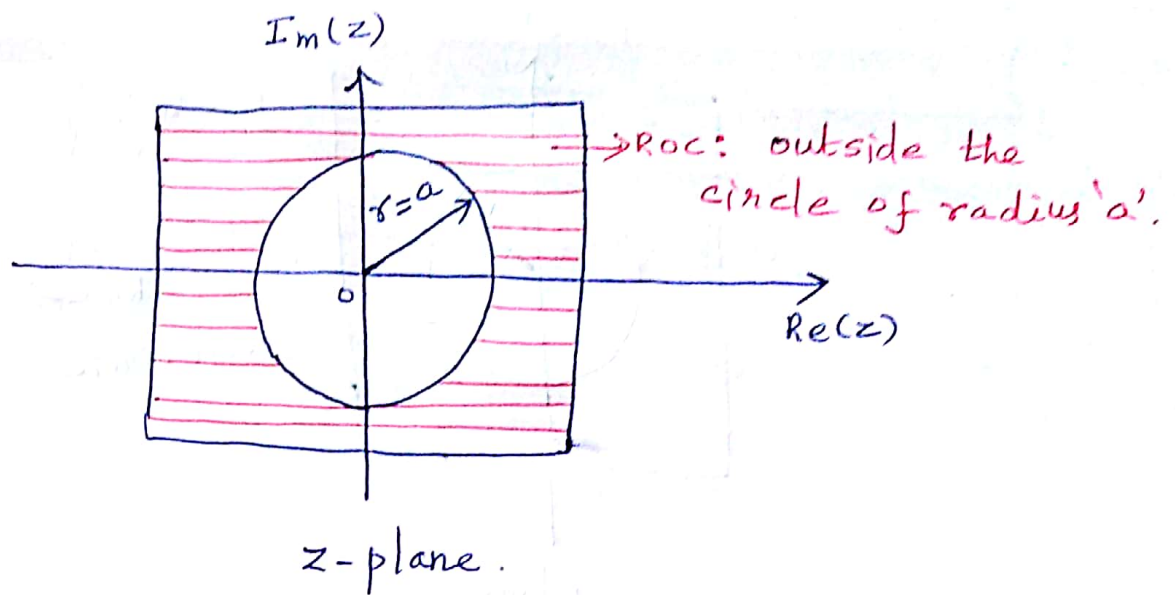 Im(z)
→ROC: outside the
circle of radius 'a'.
r=a
0
Re(z)
z-plane.